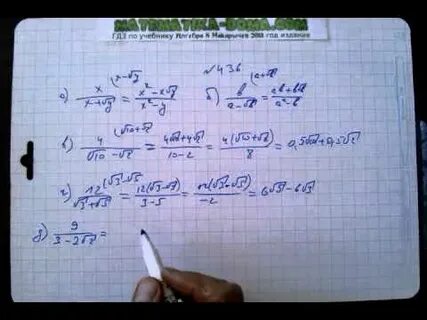 MATEMATIKA-DOMA.COM
ГДЗ по учебнику Алгебра 8 Макарычев 2013 год издание
№436
а) x/(x+√y) (x-√y) = (x²-x√y)/(x²-y) б) b/(a-√b) (a+√b) = (ab+b√b)/(a²-b)
в) 4/(√10-√2) (√10+√2) = (4√10+4√2)/(10-2) = 4(√10+√2)/8 = 0,5√10+0,5√2
г) 12/(√3+√5) (√3-√5) = 12(√3-√5)/(3-5) = 12(√3-√5)/(-2) = 6√5-6√3
д) 9/(3-2√2) =